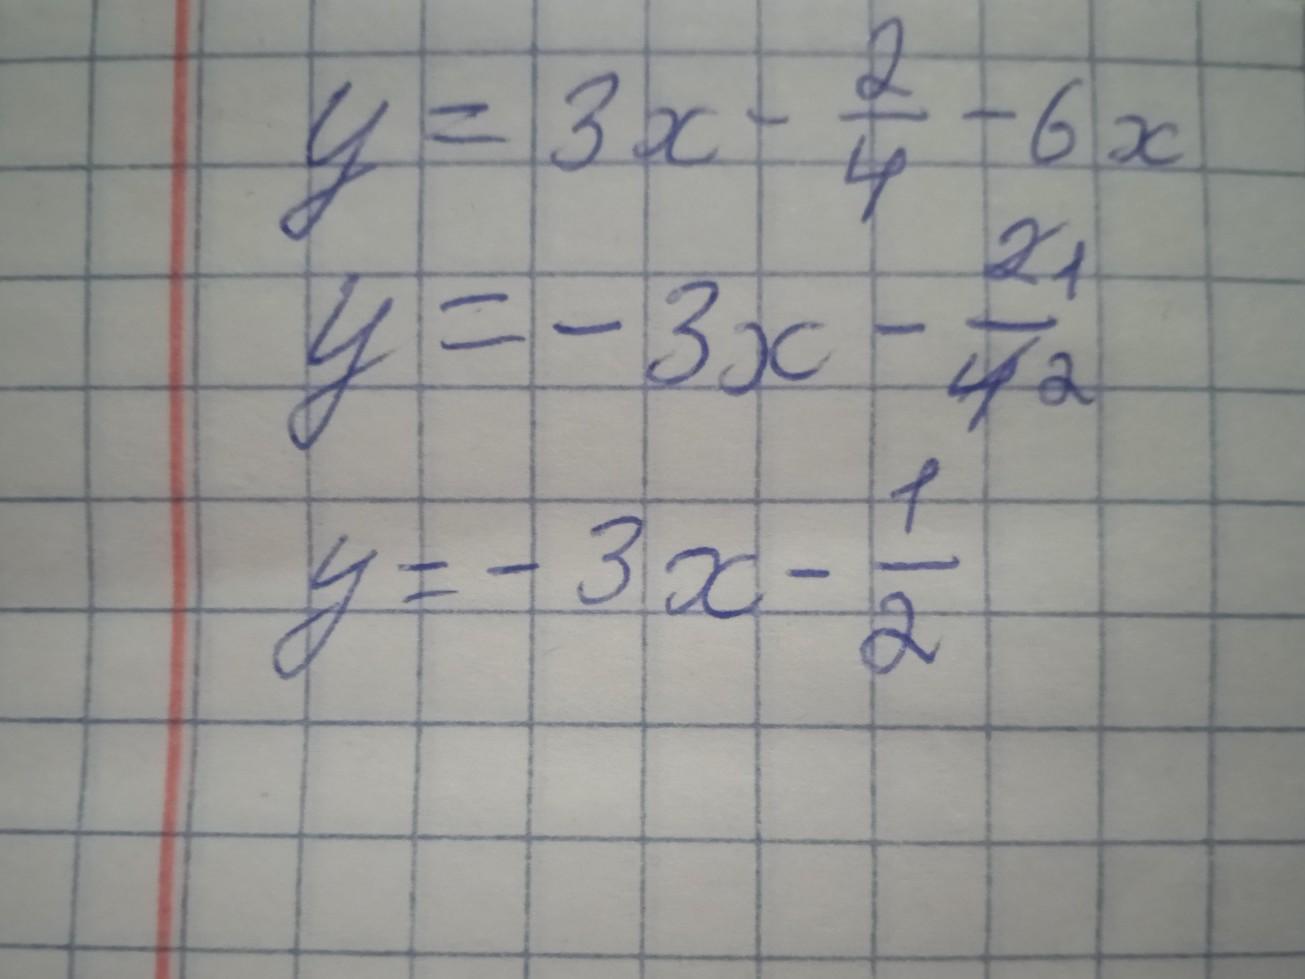 y = 3x - 2/4 - 6x
y = - 3x - 2 1/4 2
y = - 3x - 1/2